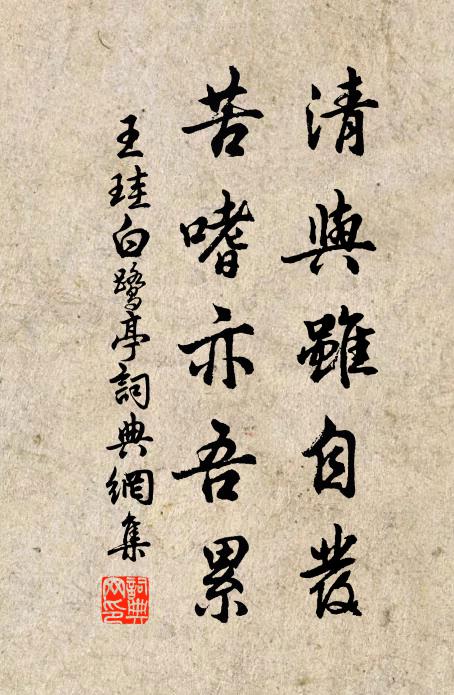 清與雖自發
苦嗜亦吾累
王珪白鷺亭詞典網集
詞典
网印